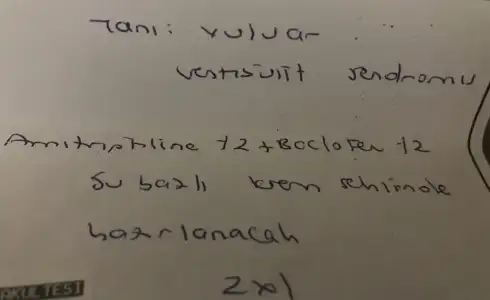 Tanı: vulvar
vestibülit sendromu
Amitriptiline %2 + Baclofen %2
Su bazlı krem şeklinde
hazırlanacak
2x1
AKÜLTESİ